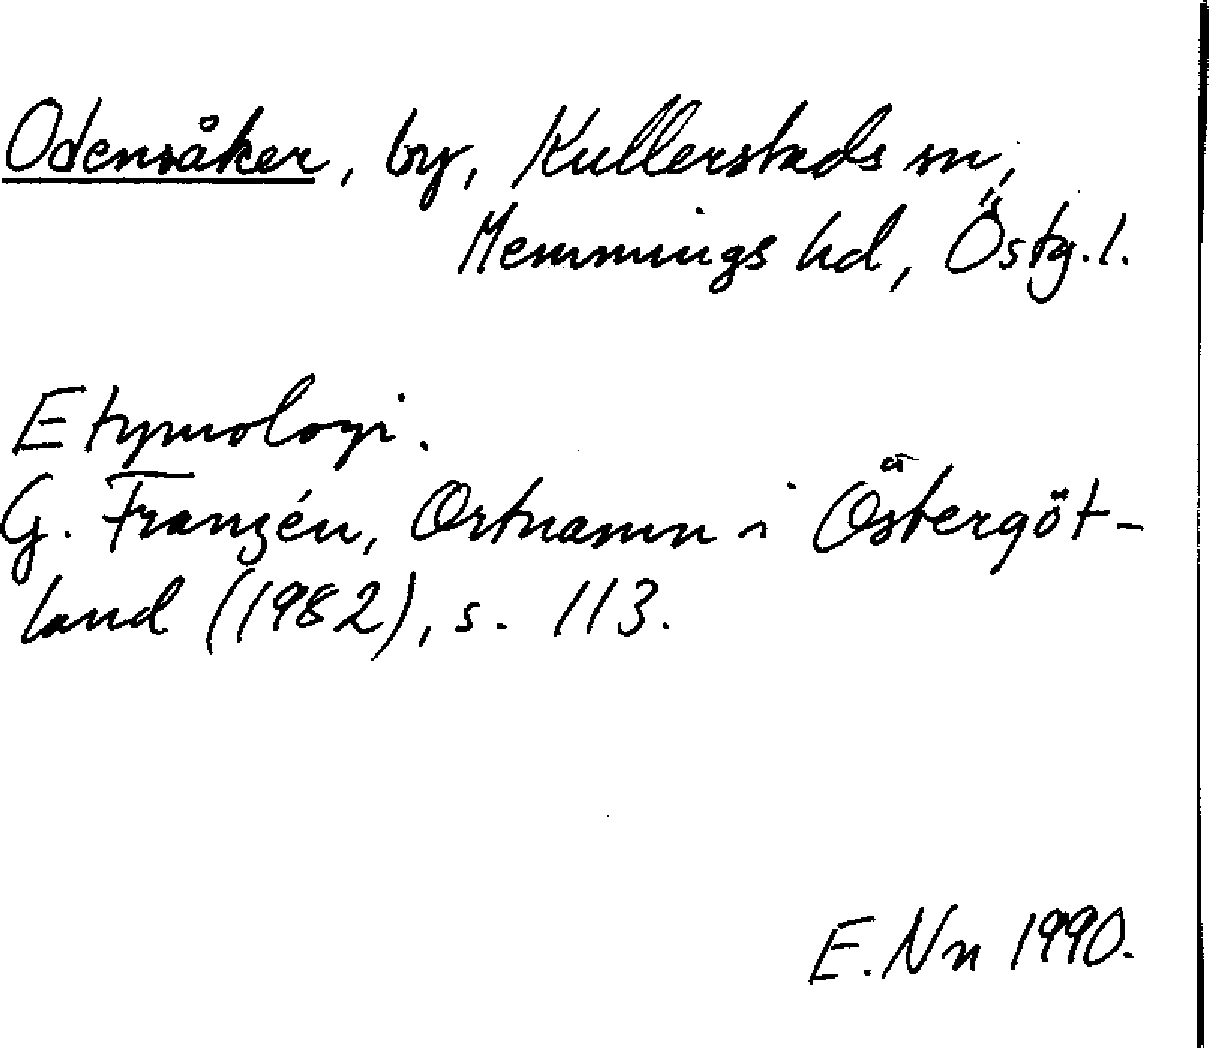 Odensåker, by, Kullerstads sn,
Memmings hd, Östg.l.
Etymologi.
G. Franzén, Ortnamn i Östergöt-
land (1982), s. 113.
E. Nn 1990.